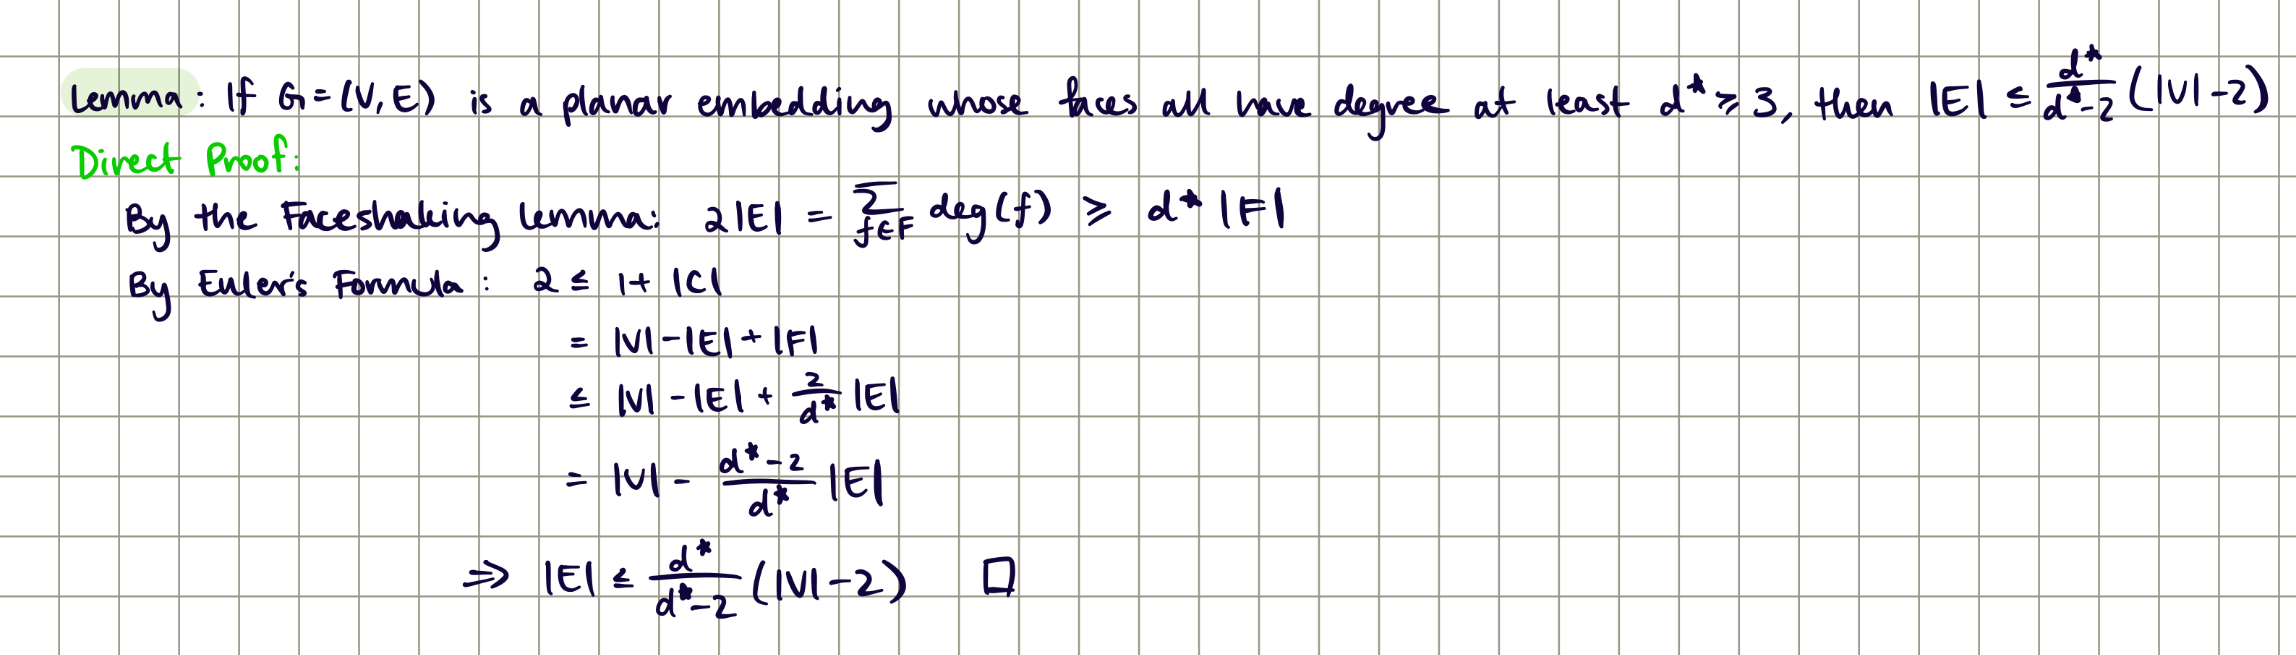 Lemma: If G=(V,E) is a planar embedding whose faces all have degree at least d* ≥ 3, then |E| ≤ d*/(d*-2) (|V|-2)
Direct Proof:
By the Faceshaking Lemma: 2|E| = Σ_{f∈F} deg(f) ≥ d* |F|
By Euler's Formula: 2 ≤ 1+ |C|
= |V|-|E|+|F|
≤ |V|-|E|+ 2/d* |E|
= |V| - (d*-2)/d* |E|
⇒ |E| ≤ d*/(d*-2) (|V|-2) □